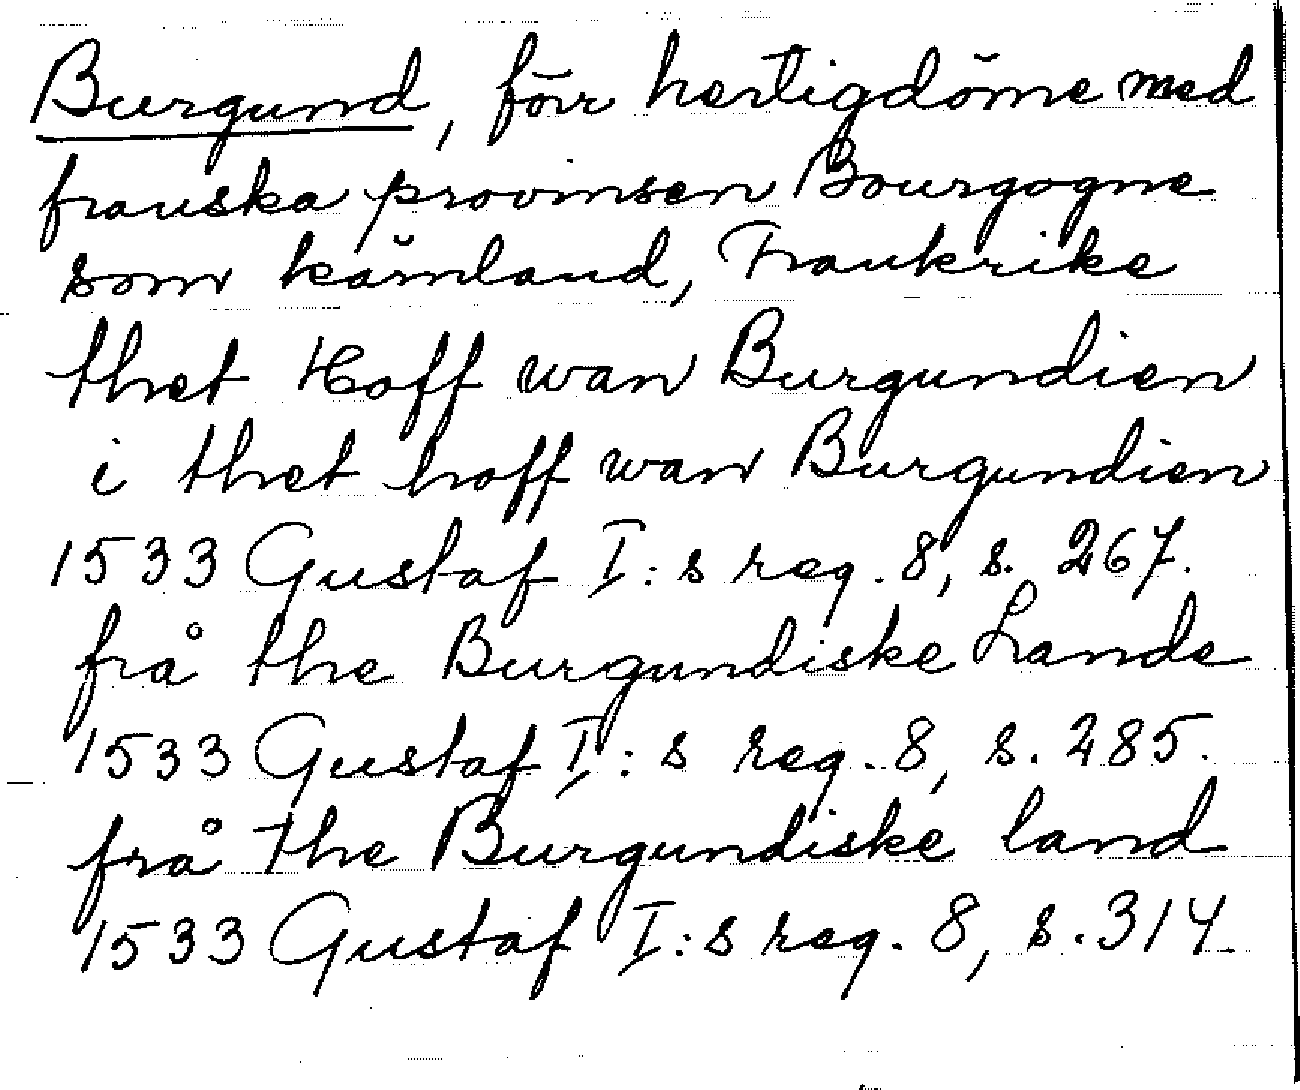 Burgund, förr hertigdöme med
franska provinsen Bourgogne
som kärnland, Frankrike
thet Hoff wan Burgundien
i thet hoff wan Burgundien
1533 Gustaf I:s reg. 8, s. 267.
frå the Burgundiske Lande
1533 Gustaf I:s reg. 8, s. 285.
frå the Burgundiske land
1533 Gustaf I:s reg. 8, s. 314